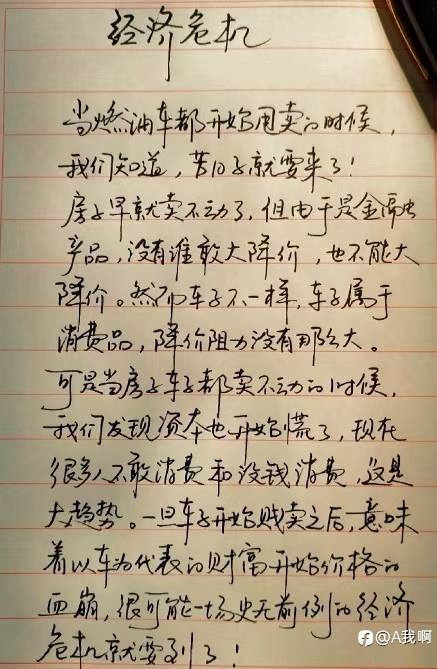 经济危机
当燃油车都开始甩卖的时候，
我们知道，苦日子就要来了！
房子早就卖不动了，但由于是金融
产品，没有谁敢大降价，也不能大
降价。然而车子不一样，车子属于
消费品，降价阻力没有那么大。
可是当房子车子都卖不动的时候，
我们发现资本也开始慌了，现在
很多人不敢消费和没钱消费，这是
大趋势。一旦车子开始贱卖之后，意味
着以车为代表的财富开始价格的
血崩，很可能一场史无前例的经济
危机就要到了！
@A我啊